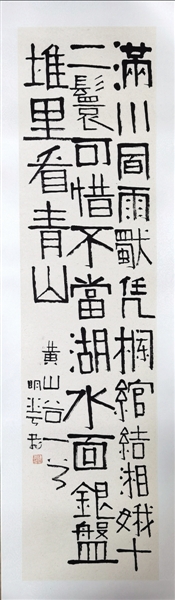 滿川風雨獨凭欄綰結湘娥十
二鬟可惜不當湖水面銀盤
堆里看青山
黄山谷
明